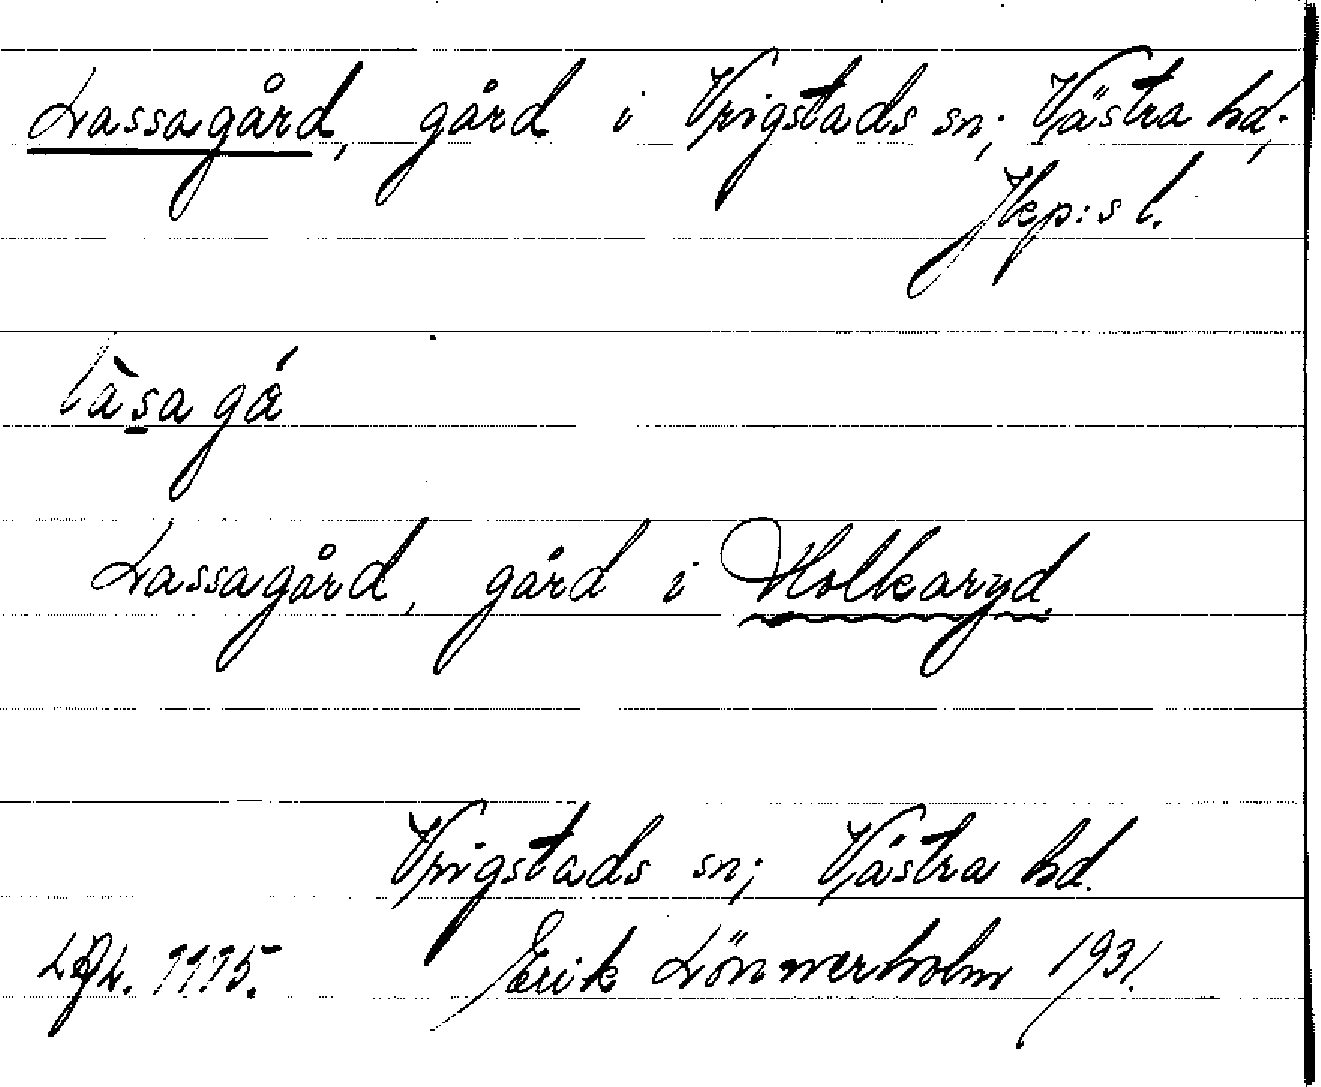 Lassagård, gård i Vrigstads sn; Västra hd;
Jkp:s l.
làsa gá
Lassagård, gård i Holkaryd.
Vrigstads sn; Västra hd.
1115. Erik Lönnerholm 1931.